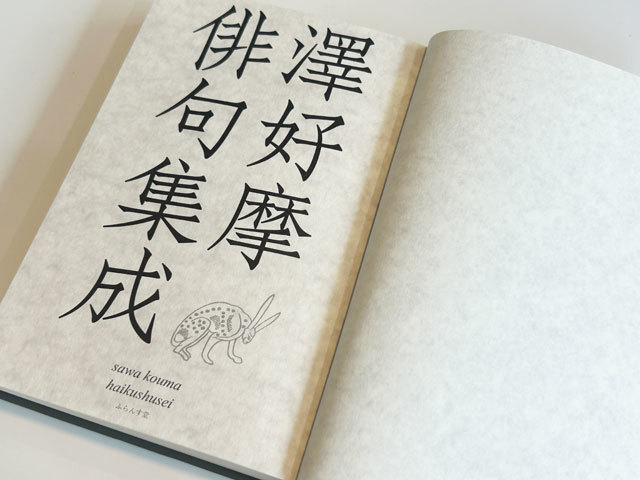 澤好摩
俳句集成
sawa kouma
haikushusei
ふらんす堂